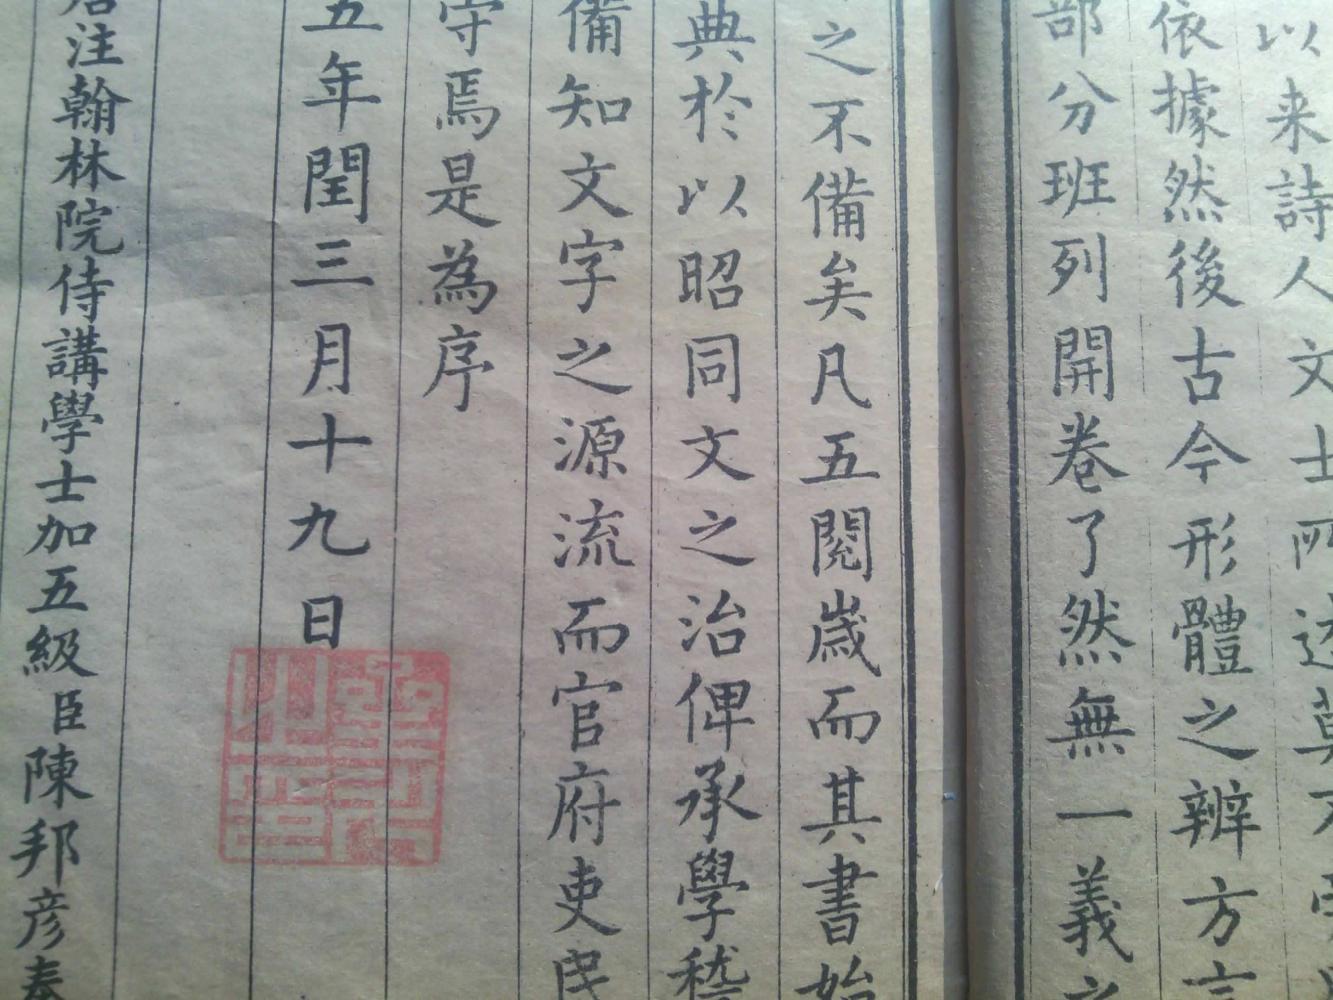 以来詩人文士所
依據然後古今形體之辨方言
部分班列開卷了然無一義之
之不備矣凡五閱歲而其書始
典於以昭同文之治俾承學稽
備知文字之源流而官府吏民
守焉是為序
五年閏三月十九日
注翰林院侍講學士加五級臣陳邦彦奉